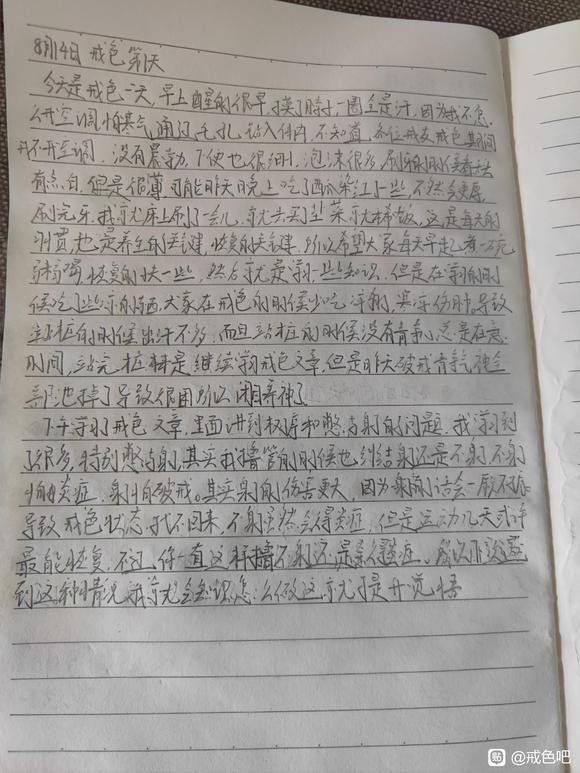 8月14日 戒色第1天
今天是戒色一天,早上醒的很早,摸了脖子一圈全是汗,因为我不怎
么开空调怕寒气通过毛孔钻入体内,不知道各位戒友戒色其间
开不开空调。没有晨勃,下便也很细,泡沫很多,刷牙的时候看舌头
有点白,但是很薄可能昨天晚上吃了西瓜染红了一些不然会更厚
刷完牙,我就床上刷了一会儿,就去买韭菜就稀饭,这是每天的
习惯也是养生的关键,恢复的关键,所以希望大家每天早起煮一碗
粥喝,恢复的快一些,然后就是学习一些知识,但是在学习的时
候吃了些 的东西,大家在戒色的时候少吃 ,其 伤肺,导致
站桩的时候出汗不多,而且站桩的时候没有音乐,总是在意
时间,站完桩料是继续学习戒色文章,但是昨天破戒肾气神全
部泄掉了导致很困所以闭目养神了。
下午学习戒色文章,里面讲到 和憋与射的问题,我学到
了很多,特别憋与射,其实我撸管的时候也纠结射还是不射,不射
怕炎症,射怕破戒。其实射的伤害更大,因为射的话会一厥不振
导致戒色状态找不回来,不射虽然会得炎症,但是运动几天或许
最能恢复,不过你一直这样撸不射还是 症。所以下次遇
到这种情况 就会想该怎么做这就是开觉悟
贴 @戒色吧